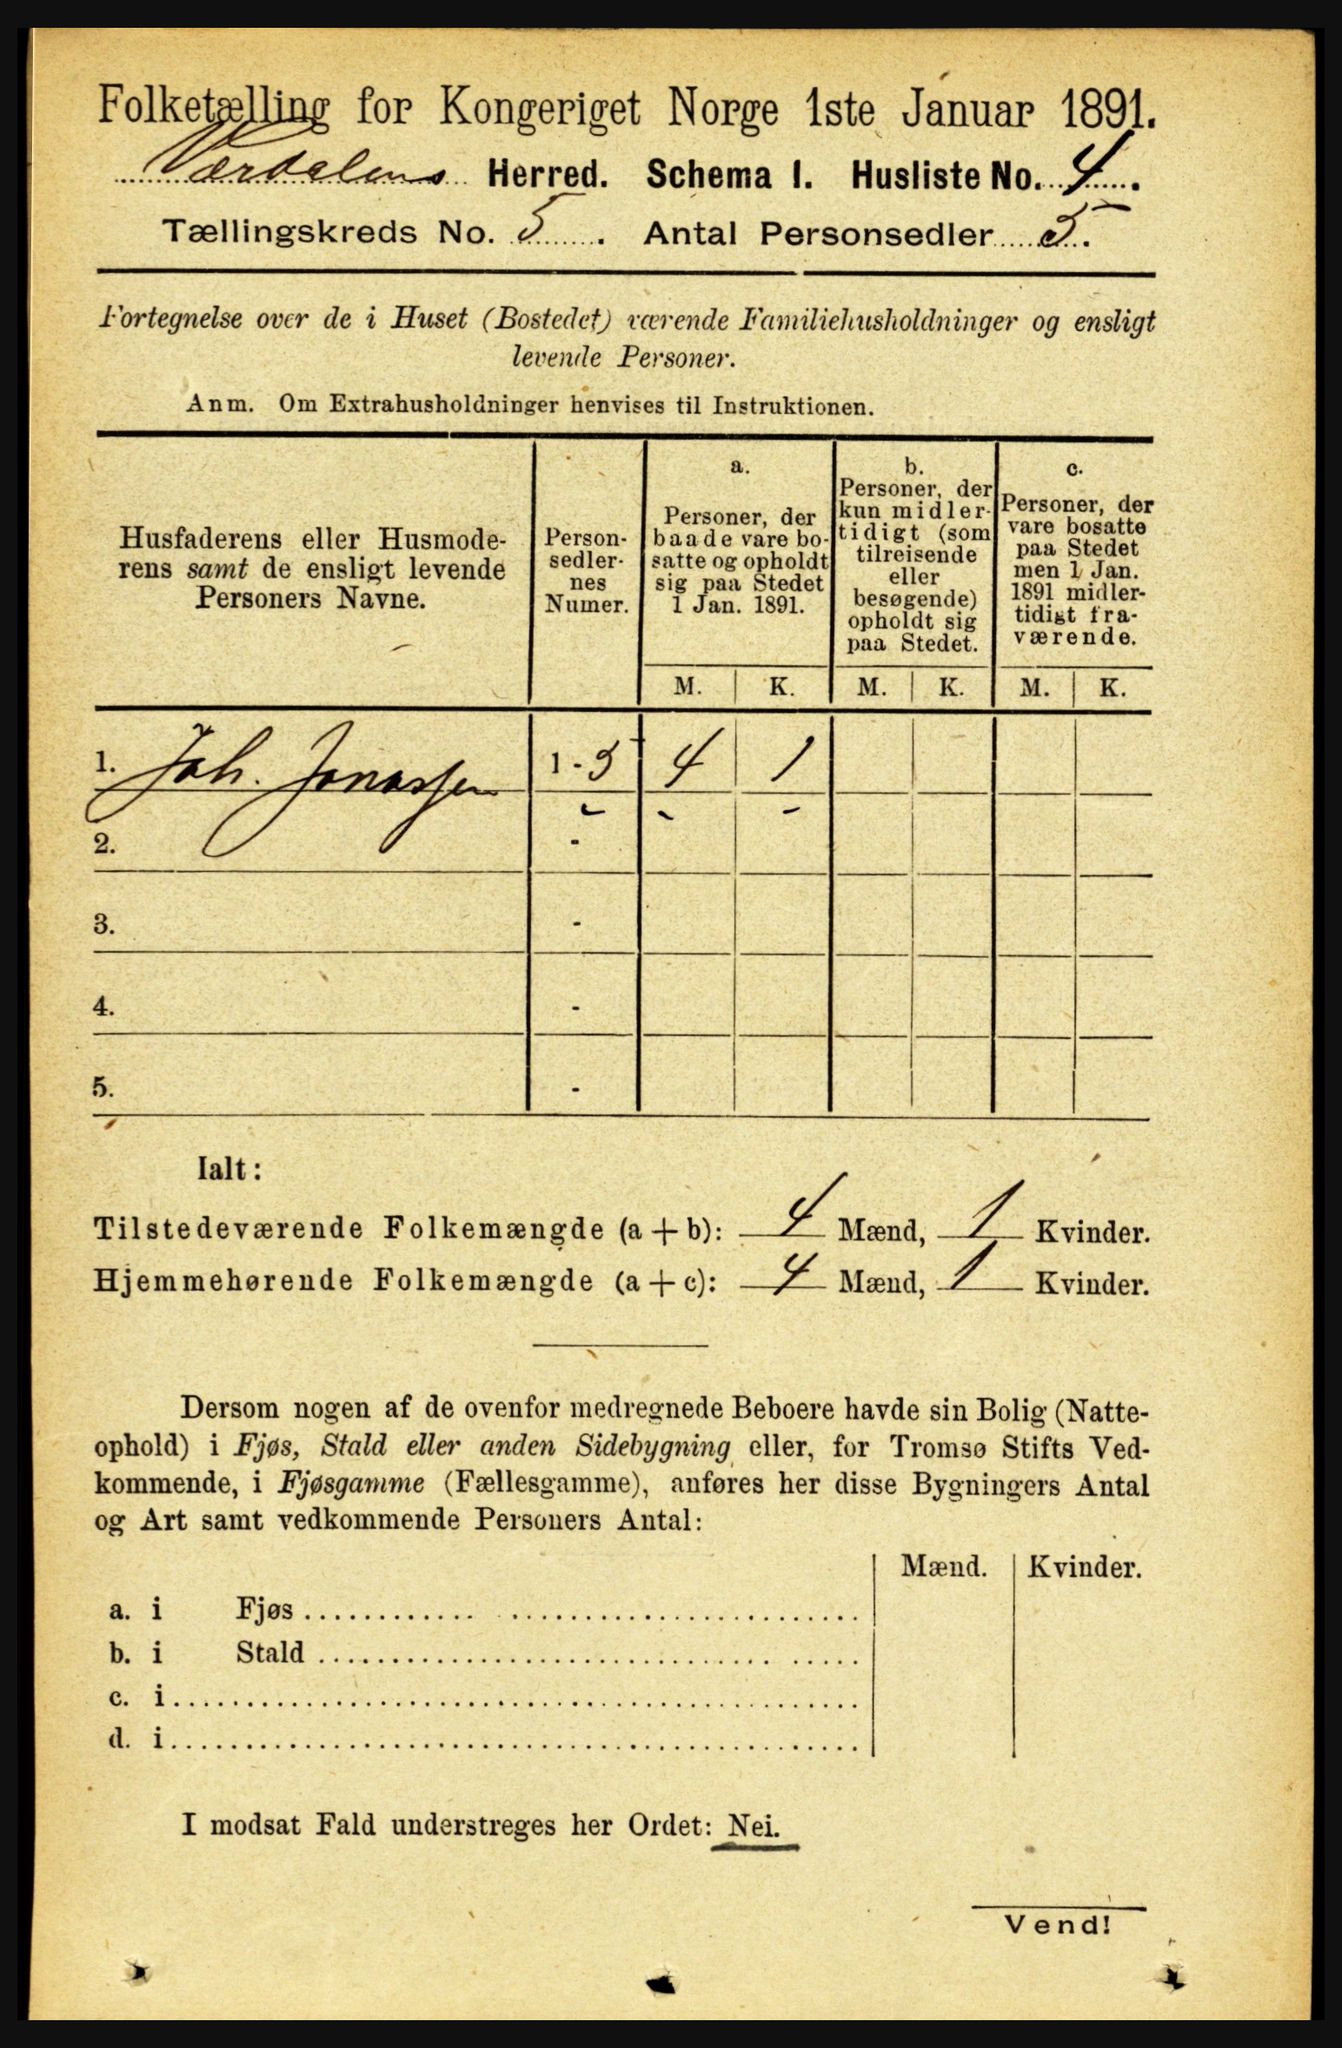 Folketælling for Kongeriget Norge 1ste Januar 1891.
Værdalens Herred. Schema I. Husliste No. 4.
Tællingskreds No. 5. Antal Personsedler 5.
Fortegnelse over de i Huset (Bostedet) værende Familiehusholdninger og ensligt
levende Personer.
Anm. Om Extrahusholdninger henvises til Instruktionen.
Husfaderens eller Husmode-
rens samt de ensligt levende
Personers Navne.
Person-
sedler-
nes
Numer.
a.
Personer, der
baade vare bo-
satte og opholdt
sig paa Stedet
1 Jan. 1891.
b.
Personer, der
kun midler-
tidigt (som
tilreisende
eller
besøgende)
opholdt sig
paa Stedet.
c.
Personer, der
vare bosatte
paa Stedet
men 1 Jan.
1891 midler-
tidigt fra-
værende.
M. K. M. K. M. K.
1. Joh. Jonassen 1 - 5 4 1
2. -
3. -
4. -
5. -
Ialt:
Tilstedeværende Folkemængde (a + b): 4 Mænd, 1 Kvinder.
Hjemmehørende Folkemængde (a + c): 4 Mænd, 1 Kvinder.
Dersom nogen af de ovenfor medregnede Beboere havde sin Bolig (Natte-
ophold) i Fjøs, Stald eller anden Sidebygning eller, for Tromsø Stifts Ved-
kommende, i Fjøsgamme (Fællesgamme), anføres her disse Bygningers Antal
og Art samt vedkommende Personers Antal:
Mænd. Kvinder.
a. i Fjøs
b. i Stald
c. i
d. i
I modsat Fald understreges her Ordet: Nei.
Vend!